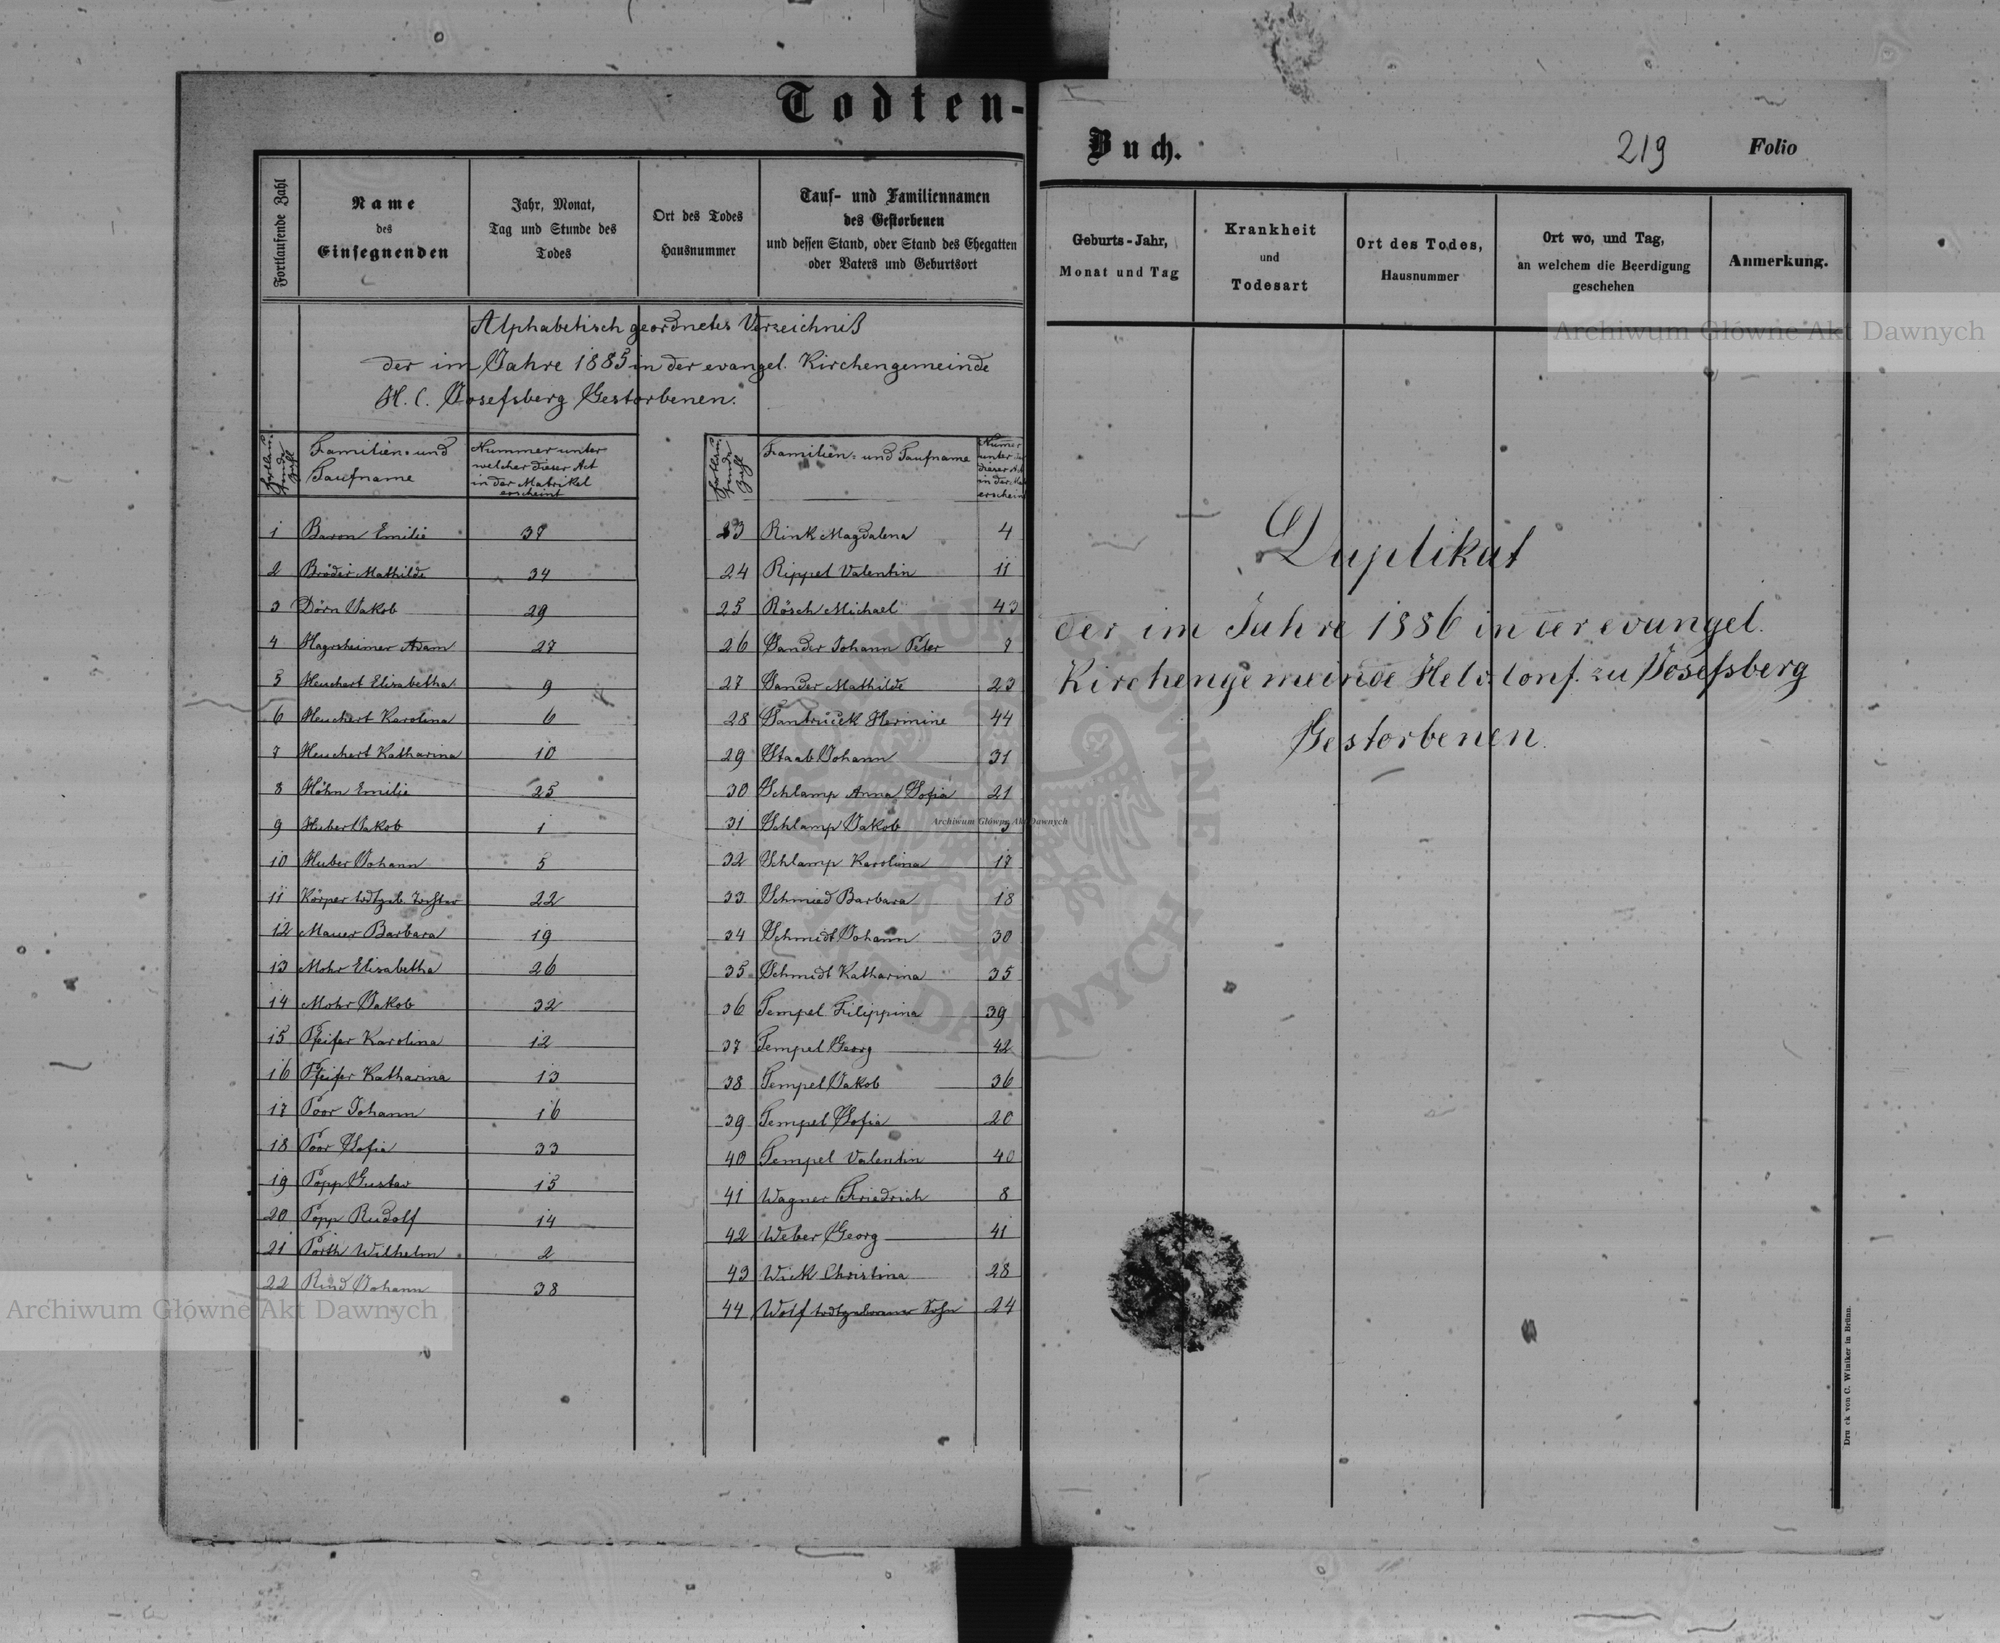 Todten-
Fortlaufende Zahl
Name
des
Einsegnenden
Jahr, Monat,
Tag und Stunde des
Todes
Ort des Todes
Hausnummer
Tauf- und Familiennamen
des Gestorbenen
und dessen Stand, oder Stand des Ehegatten
oder Vaters und Geburtsort
Alphabetisch geordnetes Verzeichniß
der im Jahre 1885 in der evangel. Kirchengemeinde
H. C. Josefsberg Gestorbenen.
Fortlaufende Zahl
Familien- und
Taufname
Nummer unter
welcher dieser Act
in der Matrikel
erscheint
1 Baron Emilie
2 Bröder Mathilde 34
3 Dörn Jakob 29
4 Adam 27
5 Heuchert Elisabetha 9
6 Heuchert Karolina 6
7 Heuchert Katharina 10
8 Höhn Emilie 25
9 Huber Jakob 1
10 Huber Johann 5
11 Körper todtgeb. Tochter 22
12 Mauer Barbara 19
13 Mohr Elisabetha 26
14 Mohr Jakob 32
15 Pfeifer Karolina 12
16 Pfeifer Katharina 13
17 Poor Johann 16
18 Poor Sofia 33
19 Popp Gustav 15
20 Popp Rudolf 14
21 Porth Wilhelm 2
22 Rind Johann 38
Fortlaufende Zahl
Familien- und Taufname
Numer
unter
dieser Act
in der
erschein
23 Rink Magdalena 4
24 Rippel Valentin 11
25 Rösch Michael 43
26 Sander Johann Peter
27 Sander Mathilde 23
28 Hermine 44
29 Staab Johann 31
30 Schlamp Anna Sofia 21
31 Schlamp Jakob 3
32 Schlamp Karolina 17
33 Schmied Barbara 18
34 Schmidt Johann 30
35 Schmidt Katharina 35
36 Tempel Filippina 39
37 Tempel Georg 42
38 Tempel Jakob 36
39 Tempel Sofia 20
40 Tempel Valentin 40
41 Wagner Friedrich 8
42 Weber Georg 41
43 Wick Christina 28
44 Wolf todtgeborener Sohn 24
Buch.
219 Folio
Geburts-Jahr,
Monat und Tag
Krankheit
und
Todesart
Ort des Todes,
Hausnummer
Ort wo, und Tag,
an welchem die Beerdigung
geschehen
Anmerkung.
Duplikat
der im Jahre 1886 in der evangel.
Kirchengemeinde Helv. Conf. zu Josefsberg
Gestorbenen.
Druck von C. Winiker in Brünn.
Archiwum Główne Akt Dawnych
Archiwum Główne Akt Dawnych
Archiwum Główne Akt Dawnych
ARCHIWUM GŁÓWNE AKT DAWNYCH